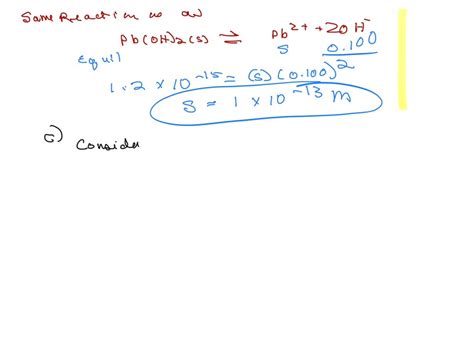 Same Reaction as a)
Pb(OH)2(s) ⇌ Pb²⁺ + 2OH⁻
Equil S 0.100
1.2 × 10⁻¹⁵ = (S)(0.100)²
S = 1 × 10⁻¹³ M
c) Conside